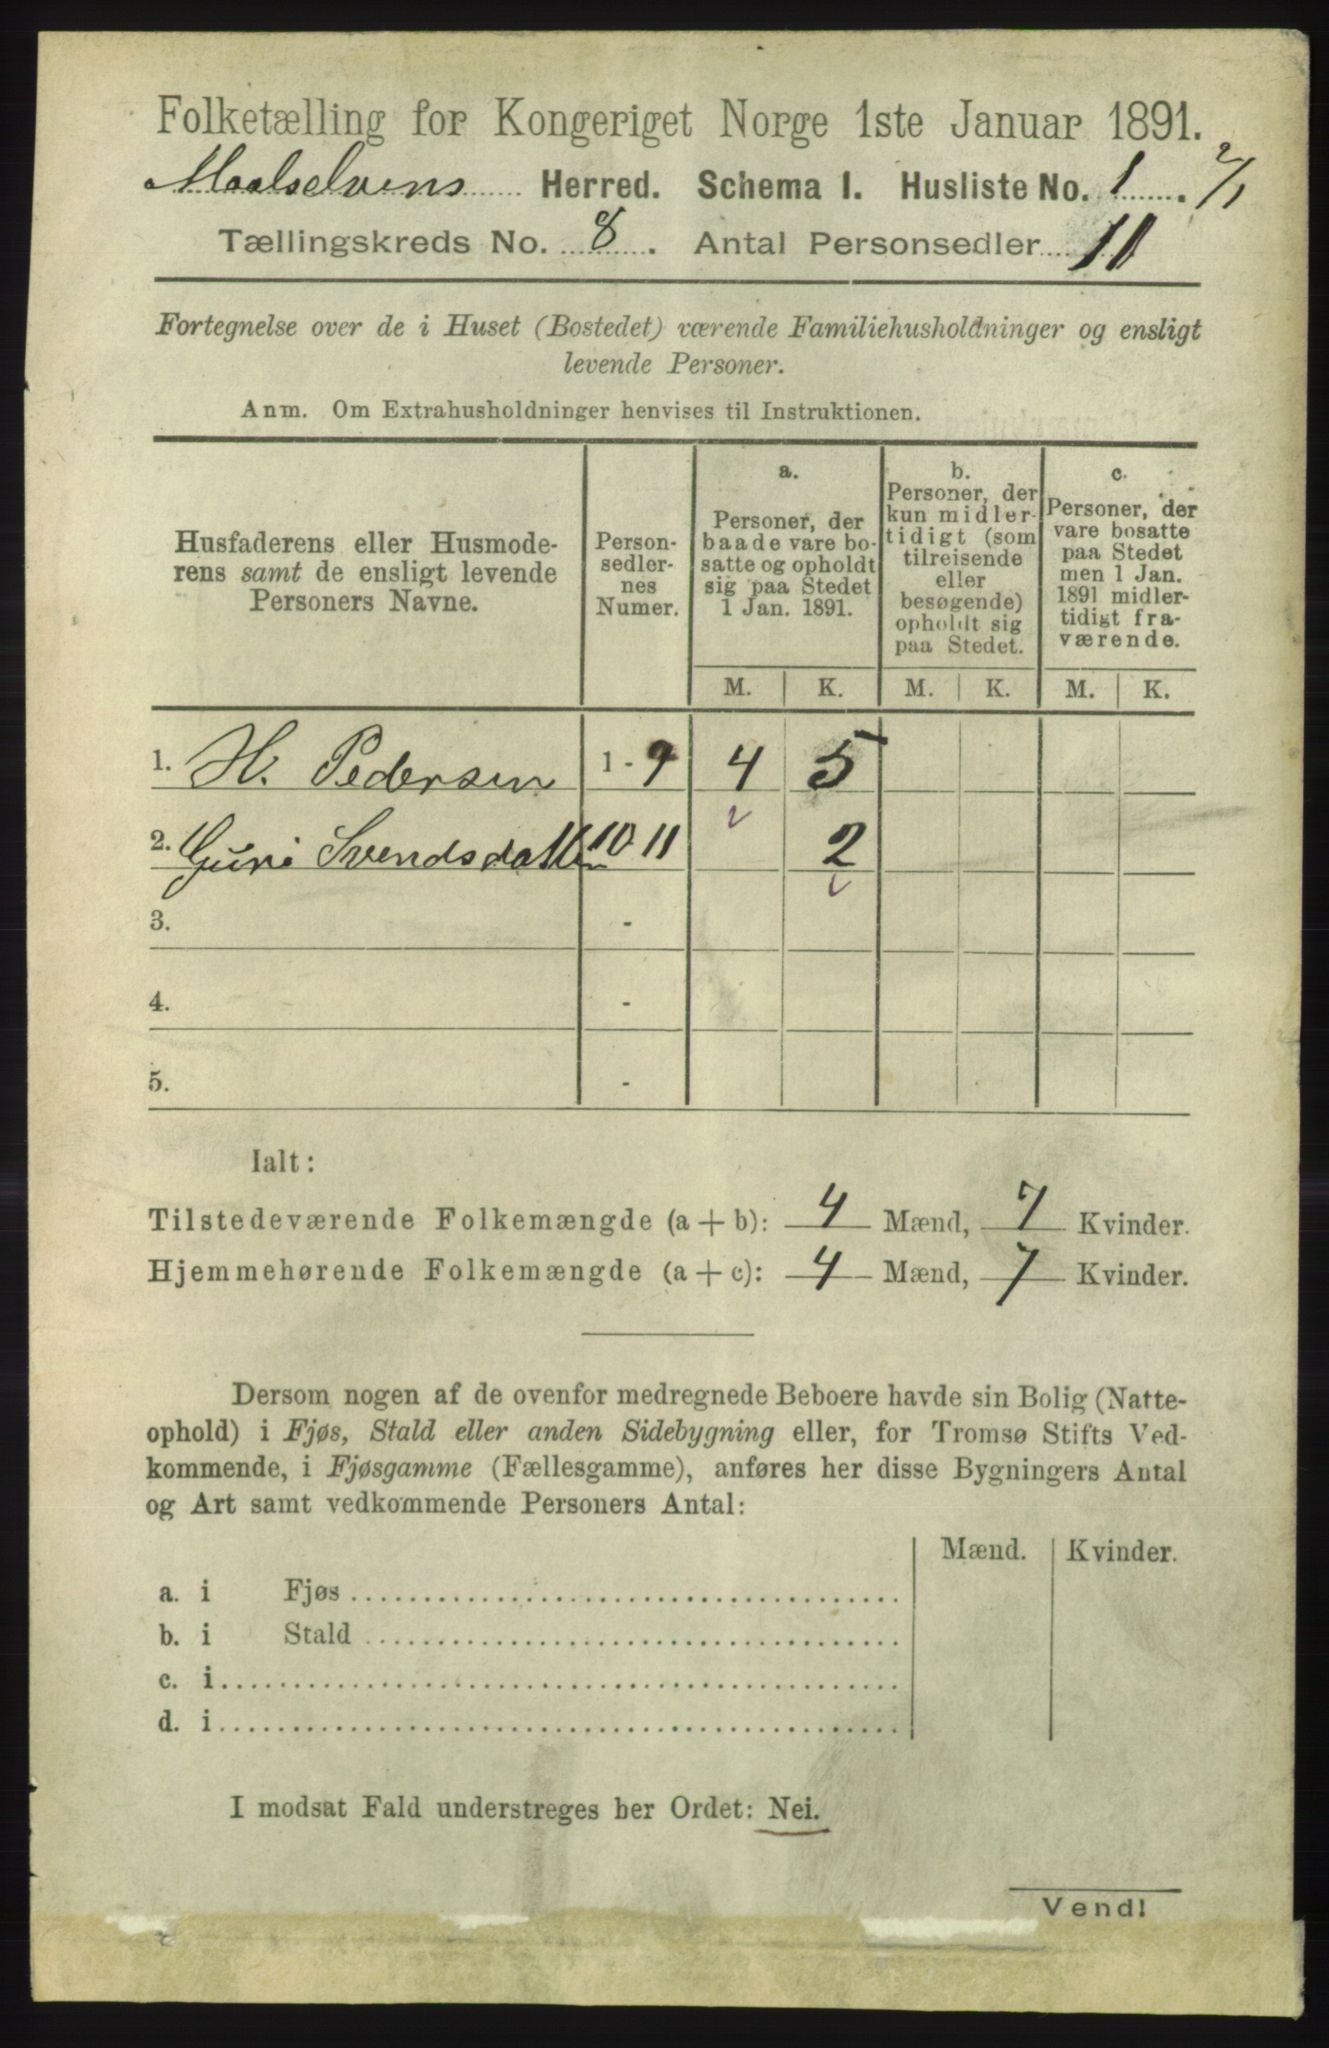 Folketælling for Kongeriget Norge 1ste Januar 1891.
Maalselvens Herred. Schema I. Husliste No. 1. 2/1
Tællingskreds No. 8. Antal Personsedler 11
Fortegnelse over de i Huset (Bostedet) værende Familiehusholdninger og ensligt
levende Personer.
Anm. Om Extrahusholdninger henvises til Instruktionen.
Husfaderens eller Husmode-
rens samt de ensligt levende
Personers Navne.
Person-
sedler-
nes
Numer.
a.
Personer, der
baade vare bo-
satte og opholdt
sig paa Stedet
1 Jan. 1891.
b.
Personer, der
kun midler-
tidigt (som
tilreisende
eller
besøgende)
opholdt sig
paa Stedet.
c.
Personer, der
vare bosatte
paa Stedet
men 1 Jan.
1891 midler-
tidigt fra-
værende.
M. K. M. K. M. K.
1. H. Pedersen 1 - 9 4 5
2. Guri Svendsdatter 10 11 2
3. -
4. -
5. -
Ialt:
Tilstedeværende Folkemængde (a + b): 4 Mænd, 7 Kvinder.
Hjemmehørende Folkemængde (a + c): 4 Mænd, 7 Kvinder.
Dersom nogen af de ovenfor medregnede Beboere havde sin Bolig (Natte-
ophold) i Fjøs, Stald eller anden Sidebygning eller, for Tromsø Stifts Ved-
kommende, i Fjøsgamme (Fællesgamme), anføres her disse Bygningers Antal
og Art samt vedkommende Personers Antal:
Mænd. Kvinder.
a. i Fjøs
b. i Stald
c. i
d. i
I modsat Fald understreges her Ordet: Nei.
Vend!